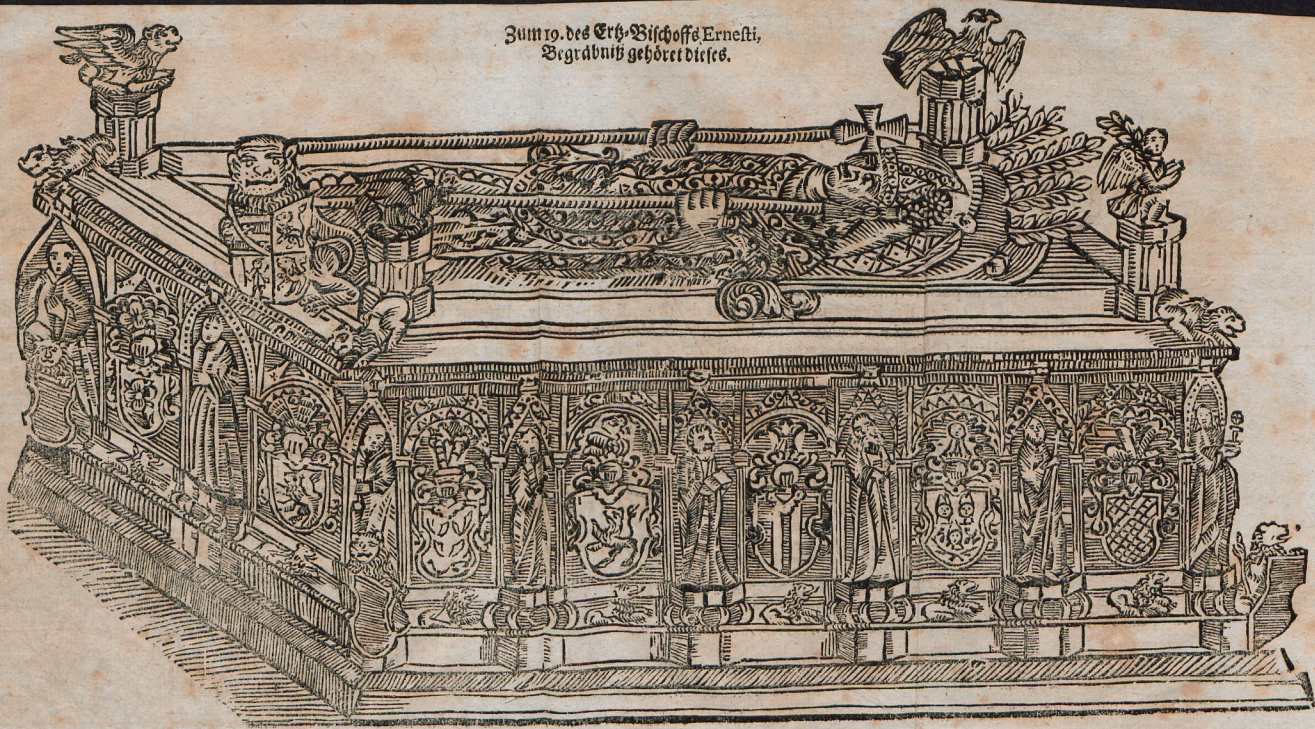 Zum 19. des Ertz-Bischoffs Ernesti,
Begräbniß gehöret dieses.